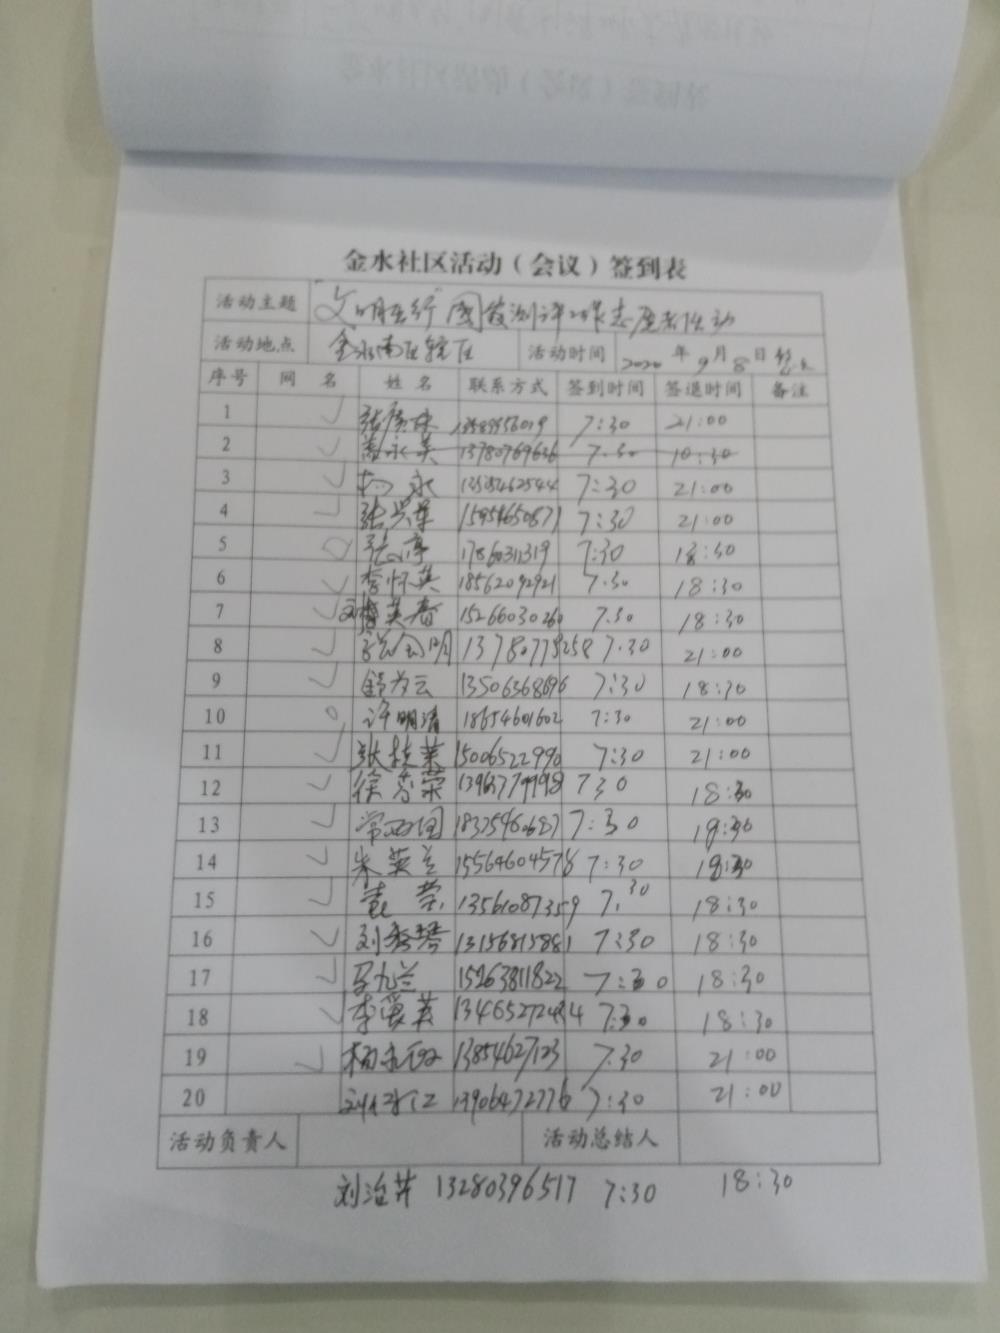 金水社区活动（会议）签到表
活动主题 "文明出行" 志愿者活动
活动地点 金水南区辖区 活动时间 2020年9月8日
序号 网名 姓名 联系方式 签到时间 签退时间 备注
1 ✓ 7:30 21:00
2 ✓ 永英 13780769636 7.30 10:30
3 ✓ 杨永 7:30 21:00
4 ✓ 张兴华 15954650871 7:30 21:00
5 张萍 17860311319 7:30 18:30
6 ✓ 李怀英 18562092921 7.30 18:30
7 ✓ 刘英春 15266030260 7.30 18:30
8 ✓ 张金明 13780779258 7.30 21:00
9 ✓ 舒为云 13506368696 7:30 18:30
10 许明清 18654601602 7:30 21:00
11 ✓ 张桂荣 15006522990 7:30 21:00
12 ✓ 徐秀荣 7 30 18:30
13 ✓ 7:30 18:30
14 ✓ 朱英兰 15564604578 7:30 18:30
15 ✓ 袁荣 13561087359 7:30 18:30
16 ✓ 刘秀琴 13156815881 7:30 18:30
17 ✓ 马九兰 15263811822 7:30 18:30
18 ✓ 李爱英 7:30 18:30
19 ✓ 杨 13854627123 7.30 21:00
20 13906472776 7:30 21:00
活动负责人 活动总结人
刘治芹 13280396517 7:30 18:30